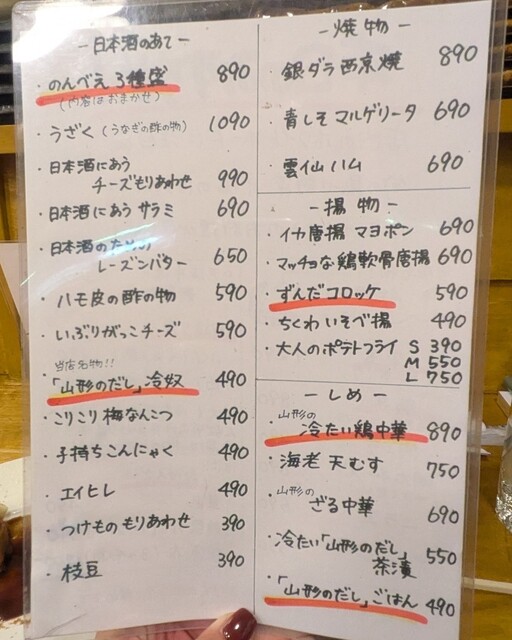 －日本酒のあて－
・のんべえ3種盛 890
(内容はおまかせ)
・うざく(うなぎの酢の物) 1090
・日本酒にあう
チーズもりあわせ 990
・日本酒にあうサラミ 690
・日本酒のための
レーズンバター 650
・ハモ皮の酢の物 590
・いぶりがっこチーズ 590
当店名物!!
・「山形のだし」冷奴 490
・こりこり梅なんこつ 490
・子持ちこんにゃく 490
・エイヒレ 490
・つけものもりあわせ 390
・枝豆 390
－焼物－
・銀ダラ西京焼 890
・青しそマルゲリータ 690
・雲仙ハム 690
－揚物－
・イカ唐揚マヨポン 690
・マッチョな鶏軟骨唐揚 690
・ずんだコロッケ 590
・ちくわいそべ揚 490
・大人のポテトフライ S 390
M 550
L 750
－しめ－
・山形の
冷たい鶏中華 890
・海老天むす 750
・山形の
ざる中華 690
・冷たい「山形のだし」
茶漬 550
・「山形のだし」ごはん 490